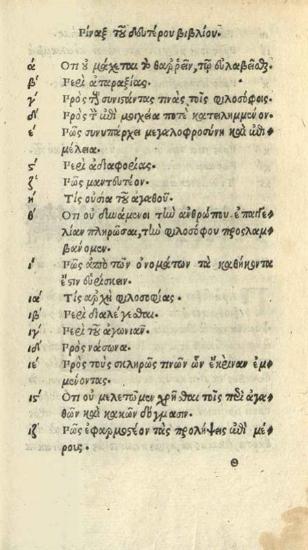 Πίναξ τοῦ δευτέρου βιβλίου.
α Ὅτι οὐ μάχεται τὸ θαῤῥεῖν, τῷ εὐλαβεῖσθαι.
β Περὶ ἀταραξίας.
γ Πρὸς τοὺς συνιστάντας τινὰς τοῖς φιλοσόφοις.
δ Πρὸς τὸν ἐπὶ μοιχείᾳ ποτὲ κατειλημμένον.
ε Πῶς συνυπάρχει μεγαλοφροσύνη καὶ ἐπι
μέλεια.
ς Περὶ ἀδιαφορίας.
ζ Πῶς μαντευτέον.
η Τίς οὐσία τοῦ ἀγαθοῦ.
θ Ὅτι οὐ δυνάμενοι τὴν ἀνθρώπου ἐπαγγε
λίαν πληρῶσαι, τὴν φιλοσόφου προσλαμ
βάνομεν.
ι Πῶς ἀπὸ τῶν ὀνομάτων τὰ καθήκοντα
ἔστιν εὑρίσκειν.
ια Τίς ἀρχὴ φιλοσοφίας.
ιβ Περὶ διαλέγεσθαι.
ιγ Περὶ τοῦ ἀγωνιᾶν.
ιδ Πρὸς νάσωνα.
ιε Πρὸς τοὺς σκληρῶς τινῶν ὧν ἔκριναν ἐμ
μένοντας.
ις Ὅτι οὐ μελετῶμεν χρῆσθαι τοῖς περὶ ἀγα
θῶν καὶ κακῶν δόγμασιν.
ιζ Πῶς ἐφαρμοστέον τὰς προλήψεις ἐπὶ μέ
ρους.
Θ